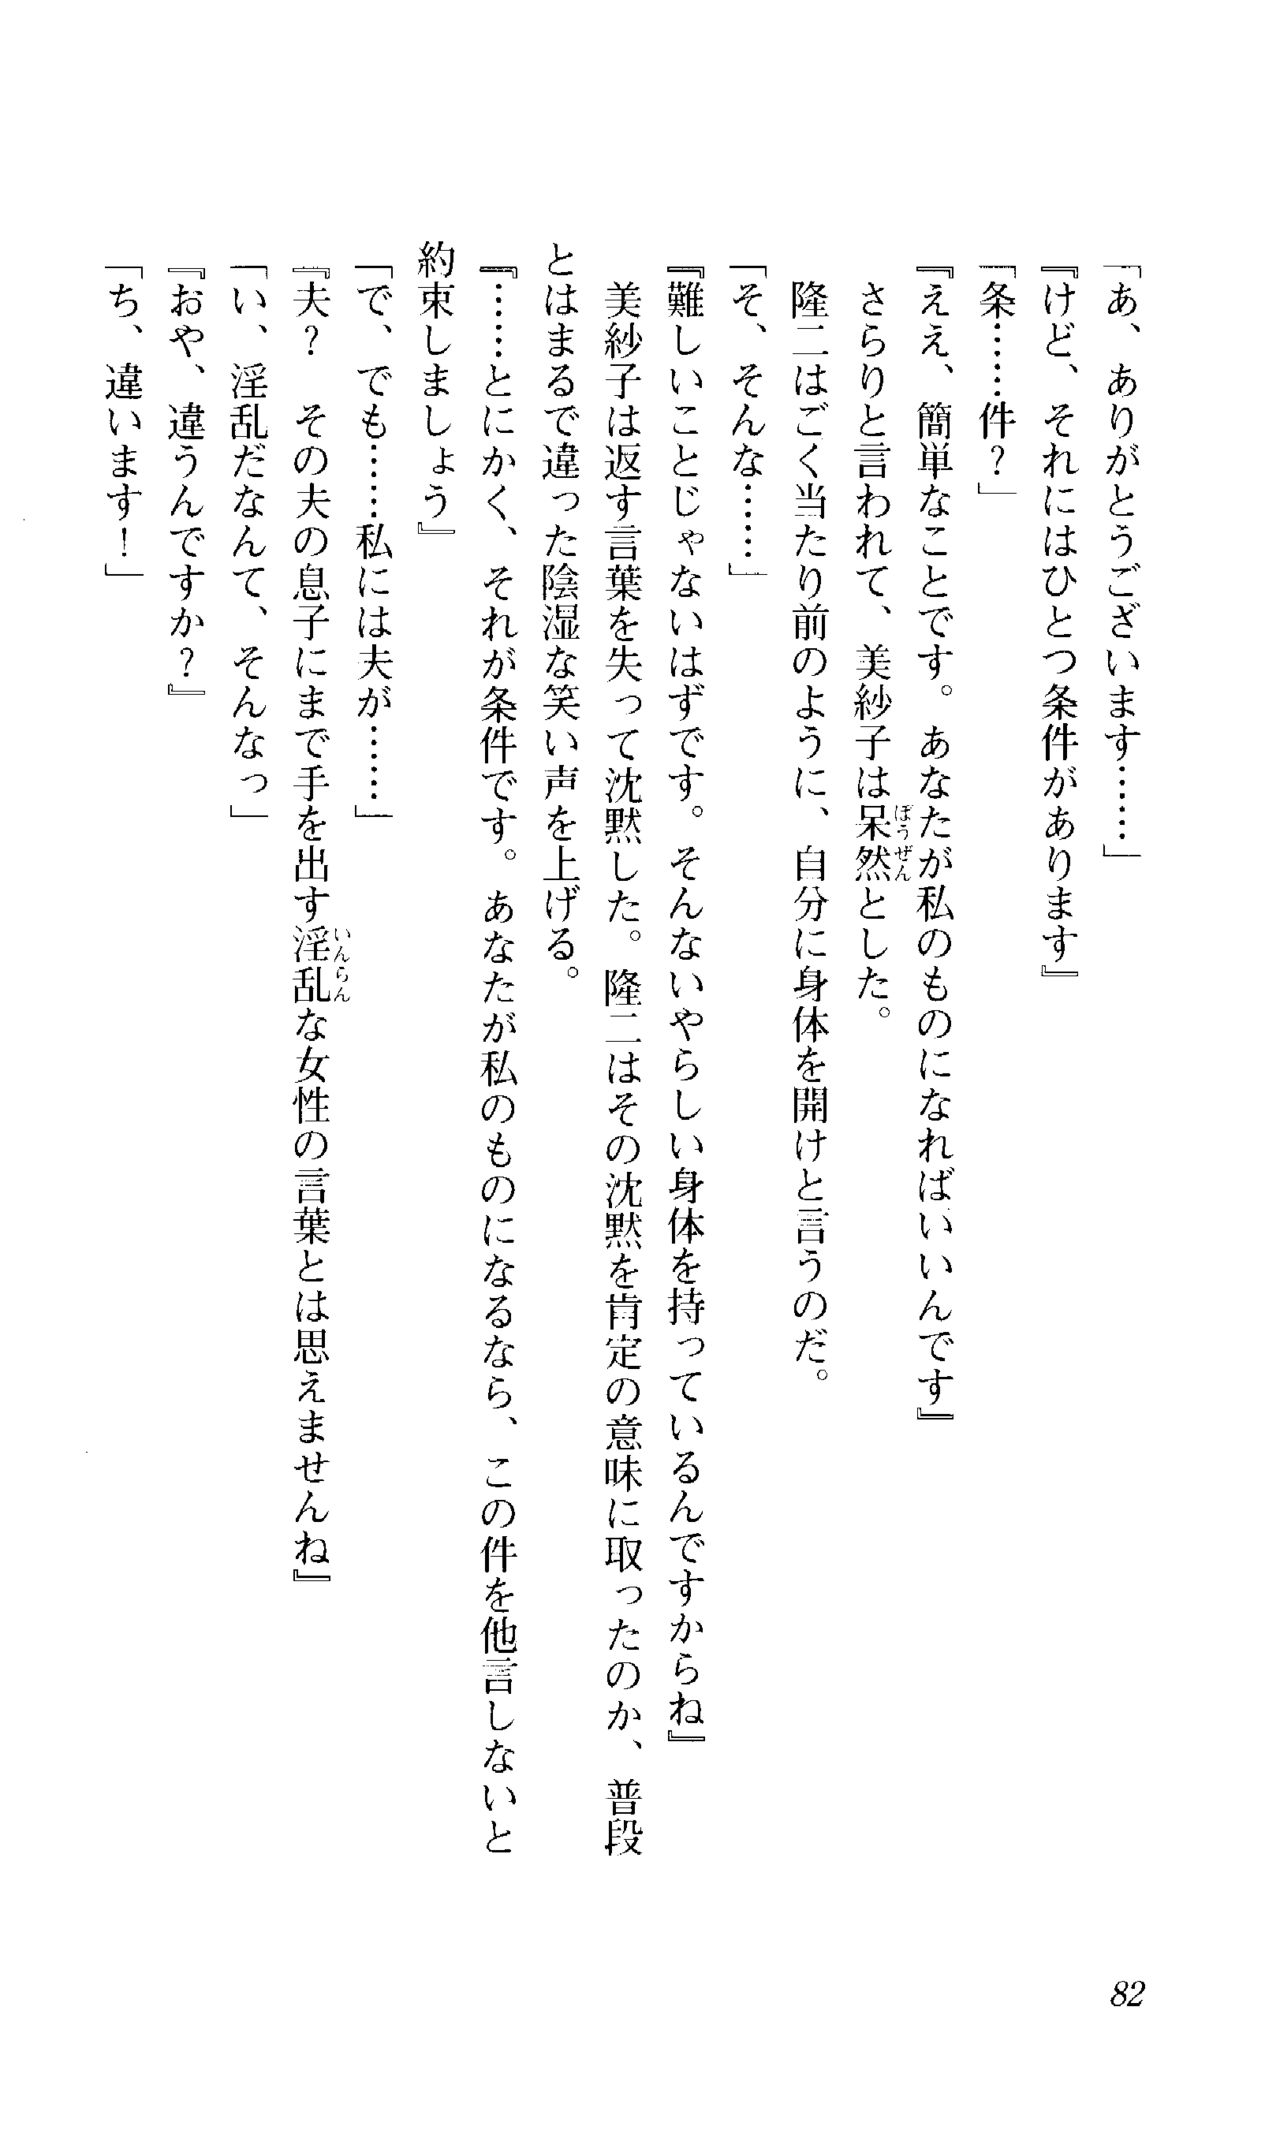 「あ、ありがとうございます……」
『けど、それにはひとつ条件があります』
「条……件？」
『ええ、簡単なことです。あなたが私のものになればいいんです』
さらりと言われて、美紗子は呆然とした。
ぼうぜん
隆二はごく当たり前のように、自分に身体を開けと言うのだ。
「そ、そんな……」
『難しいことじゃないはずです。そんないやらしい身体を持っているんですからね』
美紗子は返す言葉を失って沈黙した。隆二はその沈黙を肯定の意味に取ったのか、普段
とはまるで違った陰湿な笑い声を上げる。
『……とにかく、それが条件です。あなたが私のものになるなら、この件を他言しないと
約束しましょう』
「で、でも……私には夫が……」
『夫？　その夫の息子にまで手を出す淫乱な女性の言葉とは思えませんね』
いんらん
「い、淫乱だなんて、そんなっ」
『おや、違うんですか？』
「ち、違います！」
82